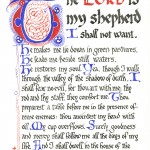 The LORD is
my shepherd
I shall not want.
He makes me lie down in green pastures,
He leads me beside still waters.
He restores my soul. Yea, though I walk
through the valley of the shadow of death, I
shall fear no evil, for thou art with me; thy
rod and thy staff, they comfort me. Thou
preparest a table before me in the presence of
mine enemies: thou anointest my head with
oil. My cup overflows. Surely goodness
and mercy shall follow me all the days of my
life. And I shall dwell in the house of the